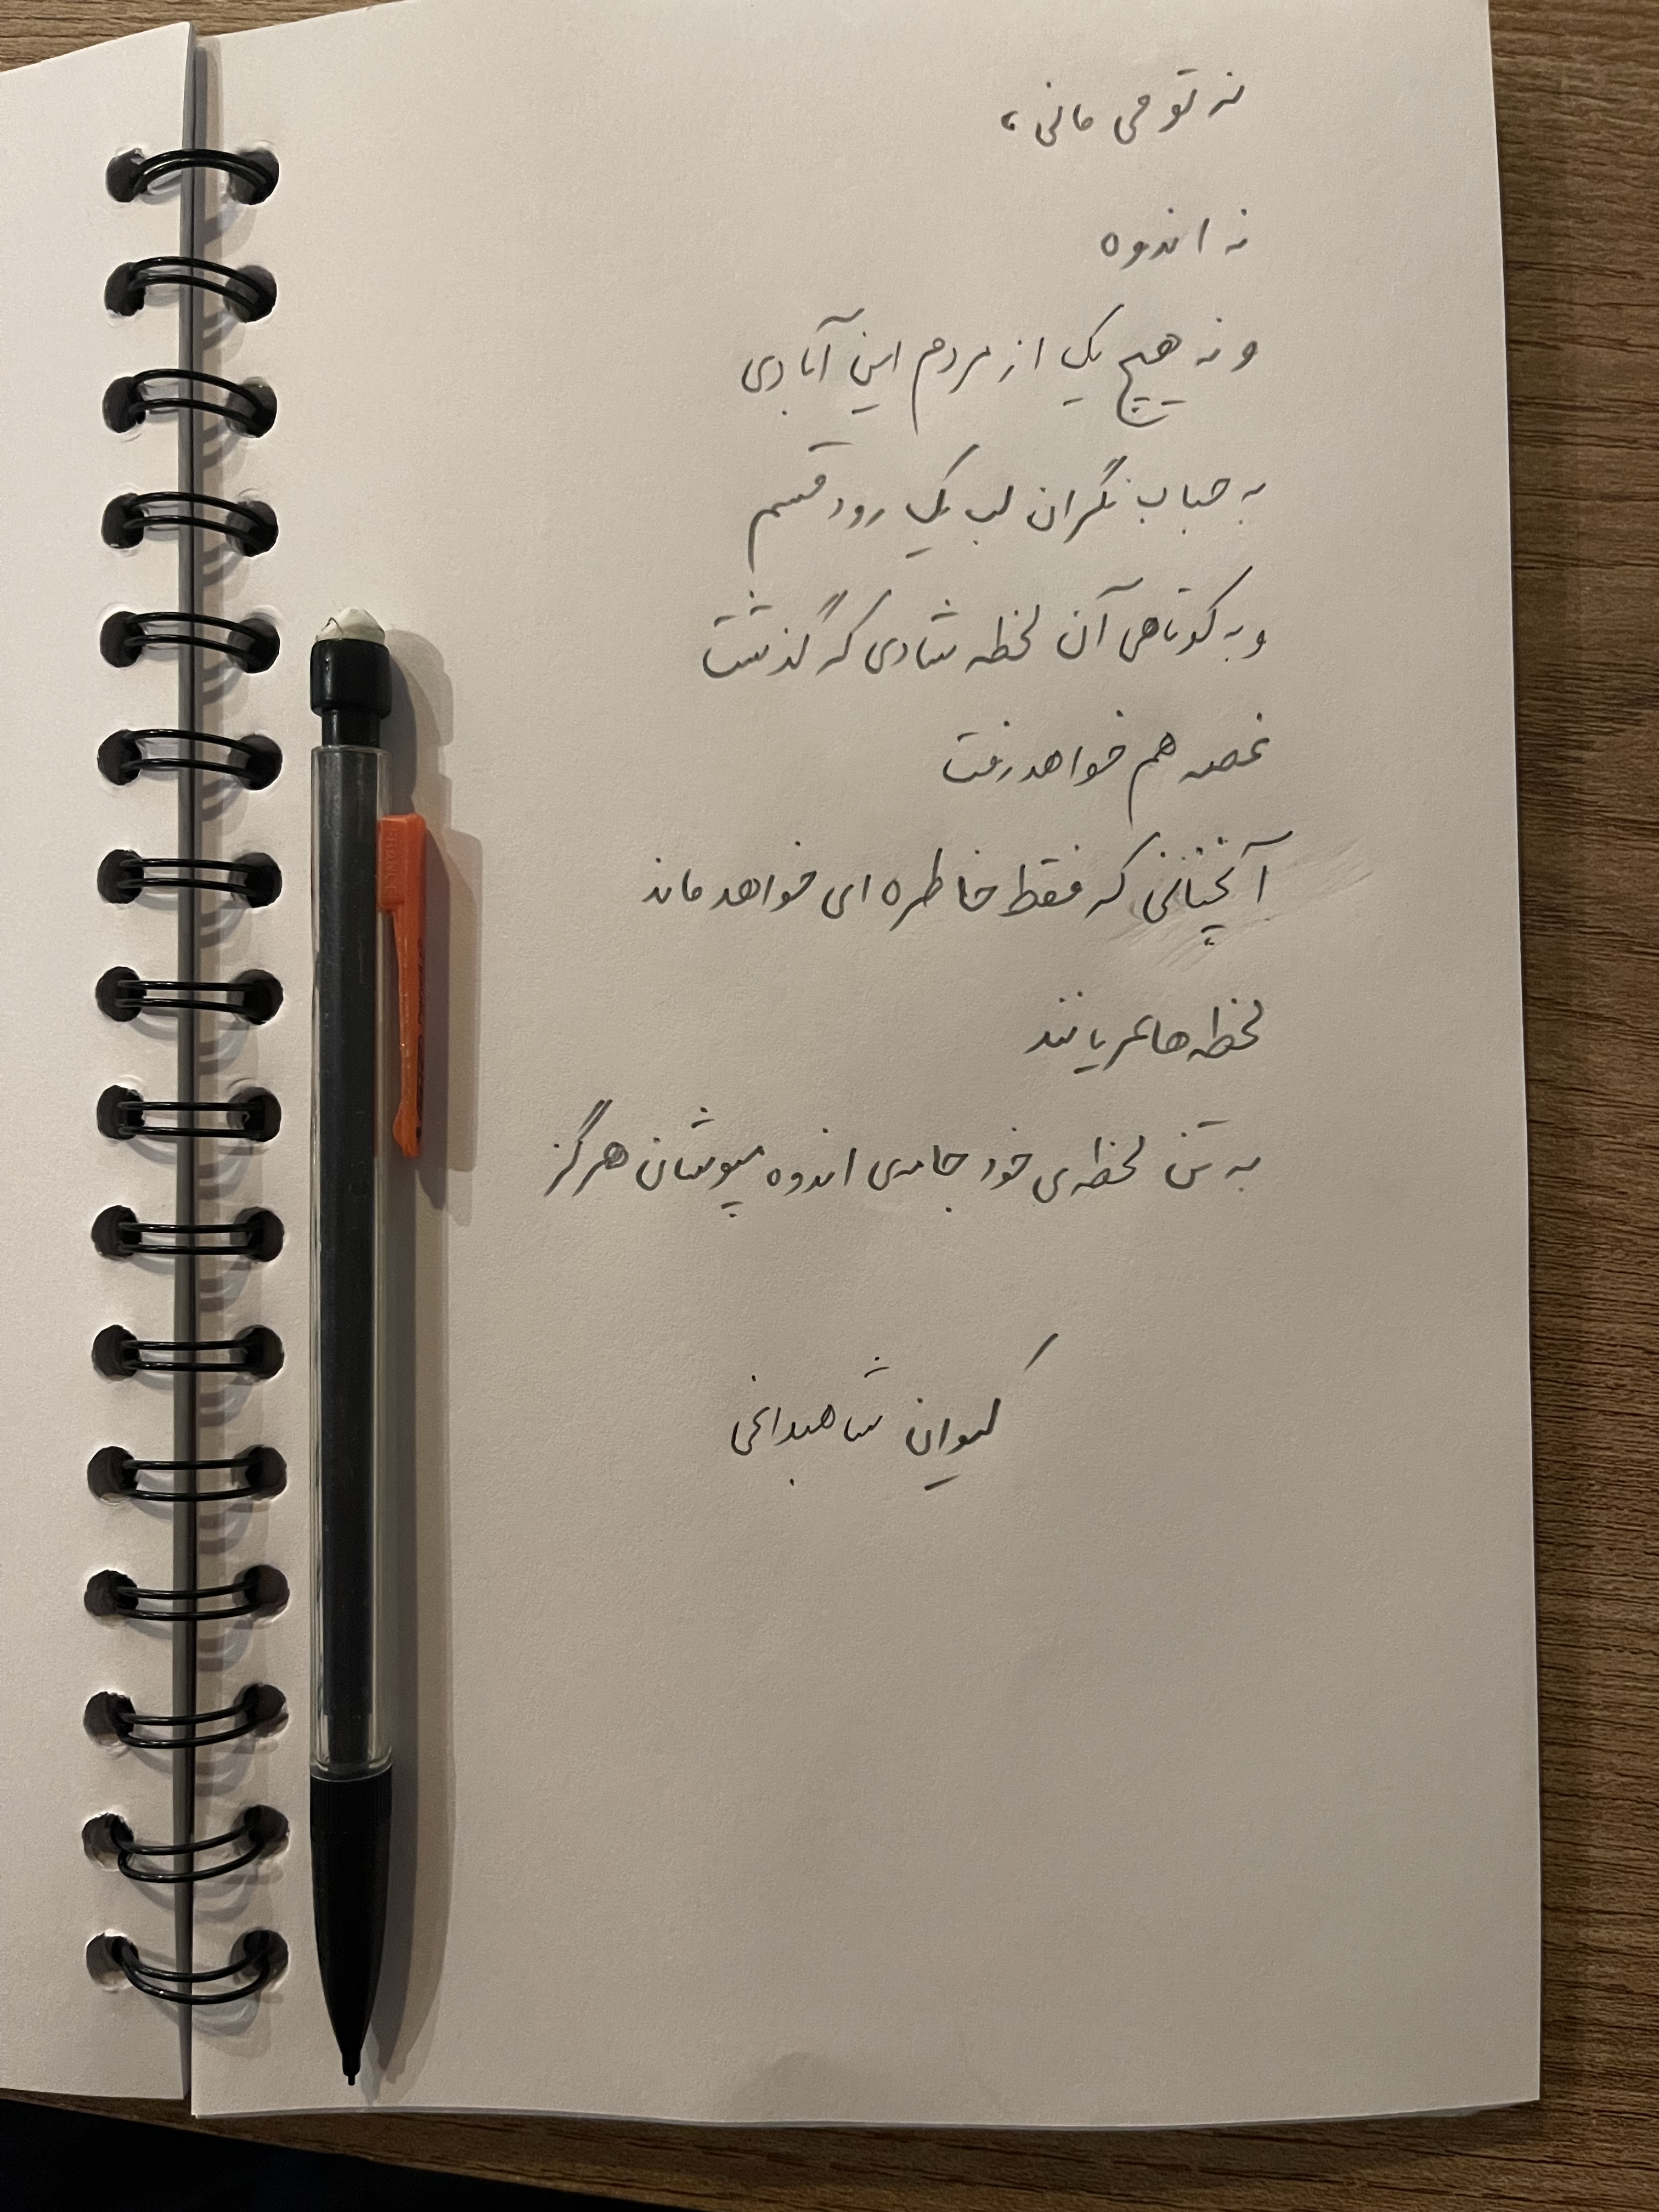 نه تو می مانی،
نه اندوه
و نه هیچ یک از مردم این آبادی
به حباب نگران لب یک رود قسم
و به کوتاهی آن لحظه شادی که گذشت
غصه هم خواهد رفت
آنچنانی که فقط خاطره ای خواهد ماند
لحظه ها عریانند
به تن لحظه ی خود جامه ی اندوه مپوشان هرگز
کیوان شاهبداغی